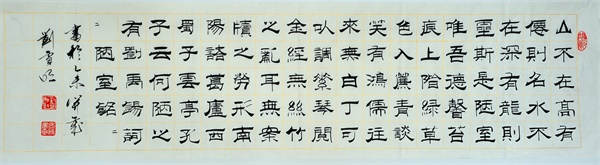 山不在高有
僊則名水不
在深有龍則
靈斯是陋室
唯吾德馨苔
痕上階緑草
色入簾青談
笑有鴻儒往
來無白丁可
以調素琴閱
金經無絲竹
之亂耳無案
牘之勞形南
陽諸葛廬西
蜀子雲亭孔
子云何陋之
有劉禹錫詞
陋室銘
書於乙未
劉雪